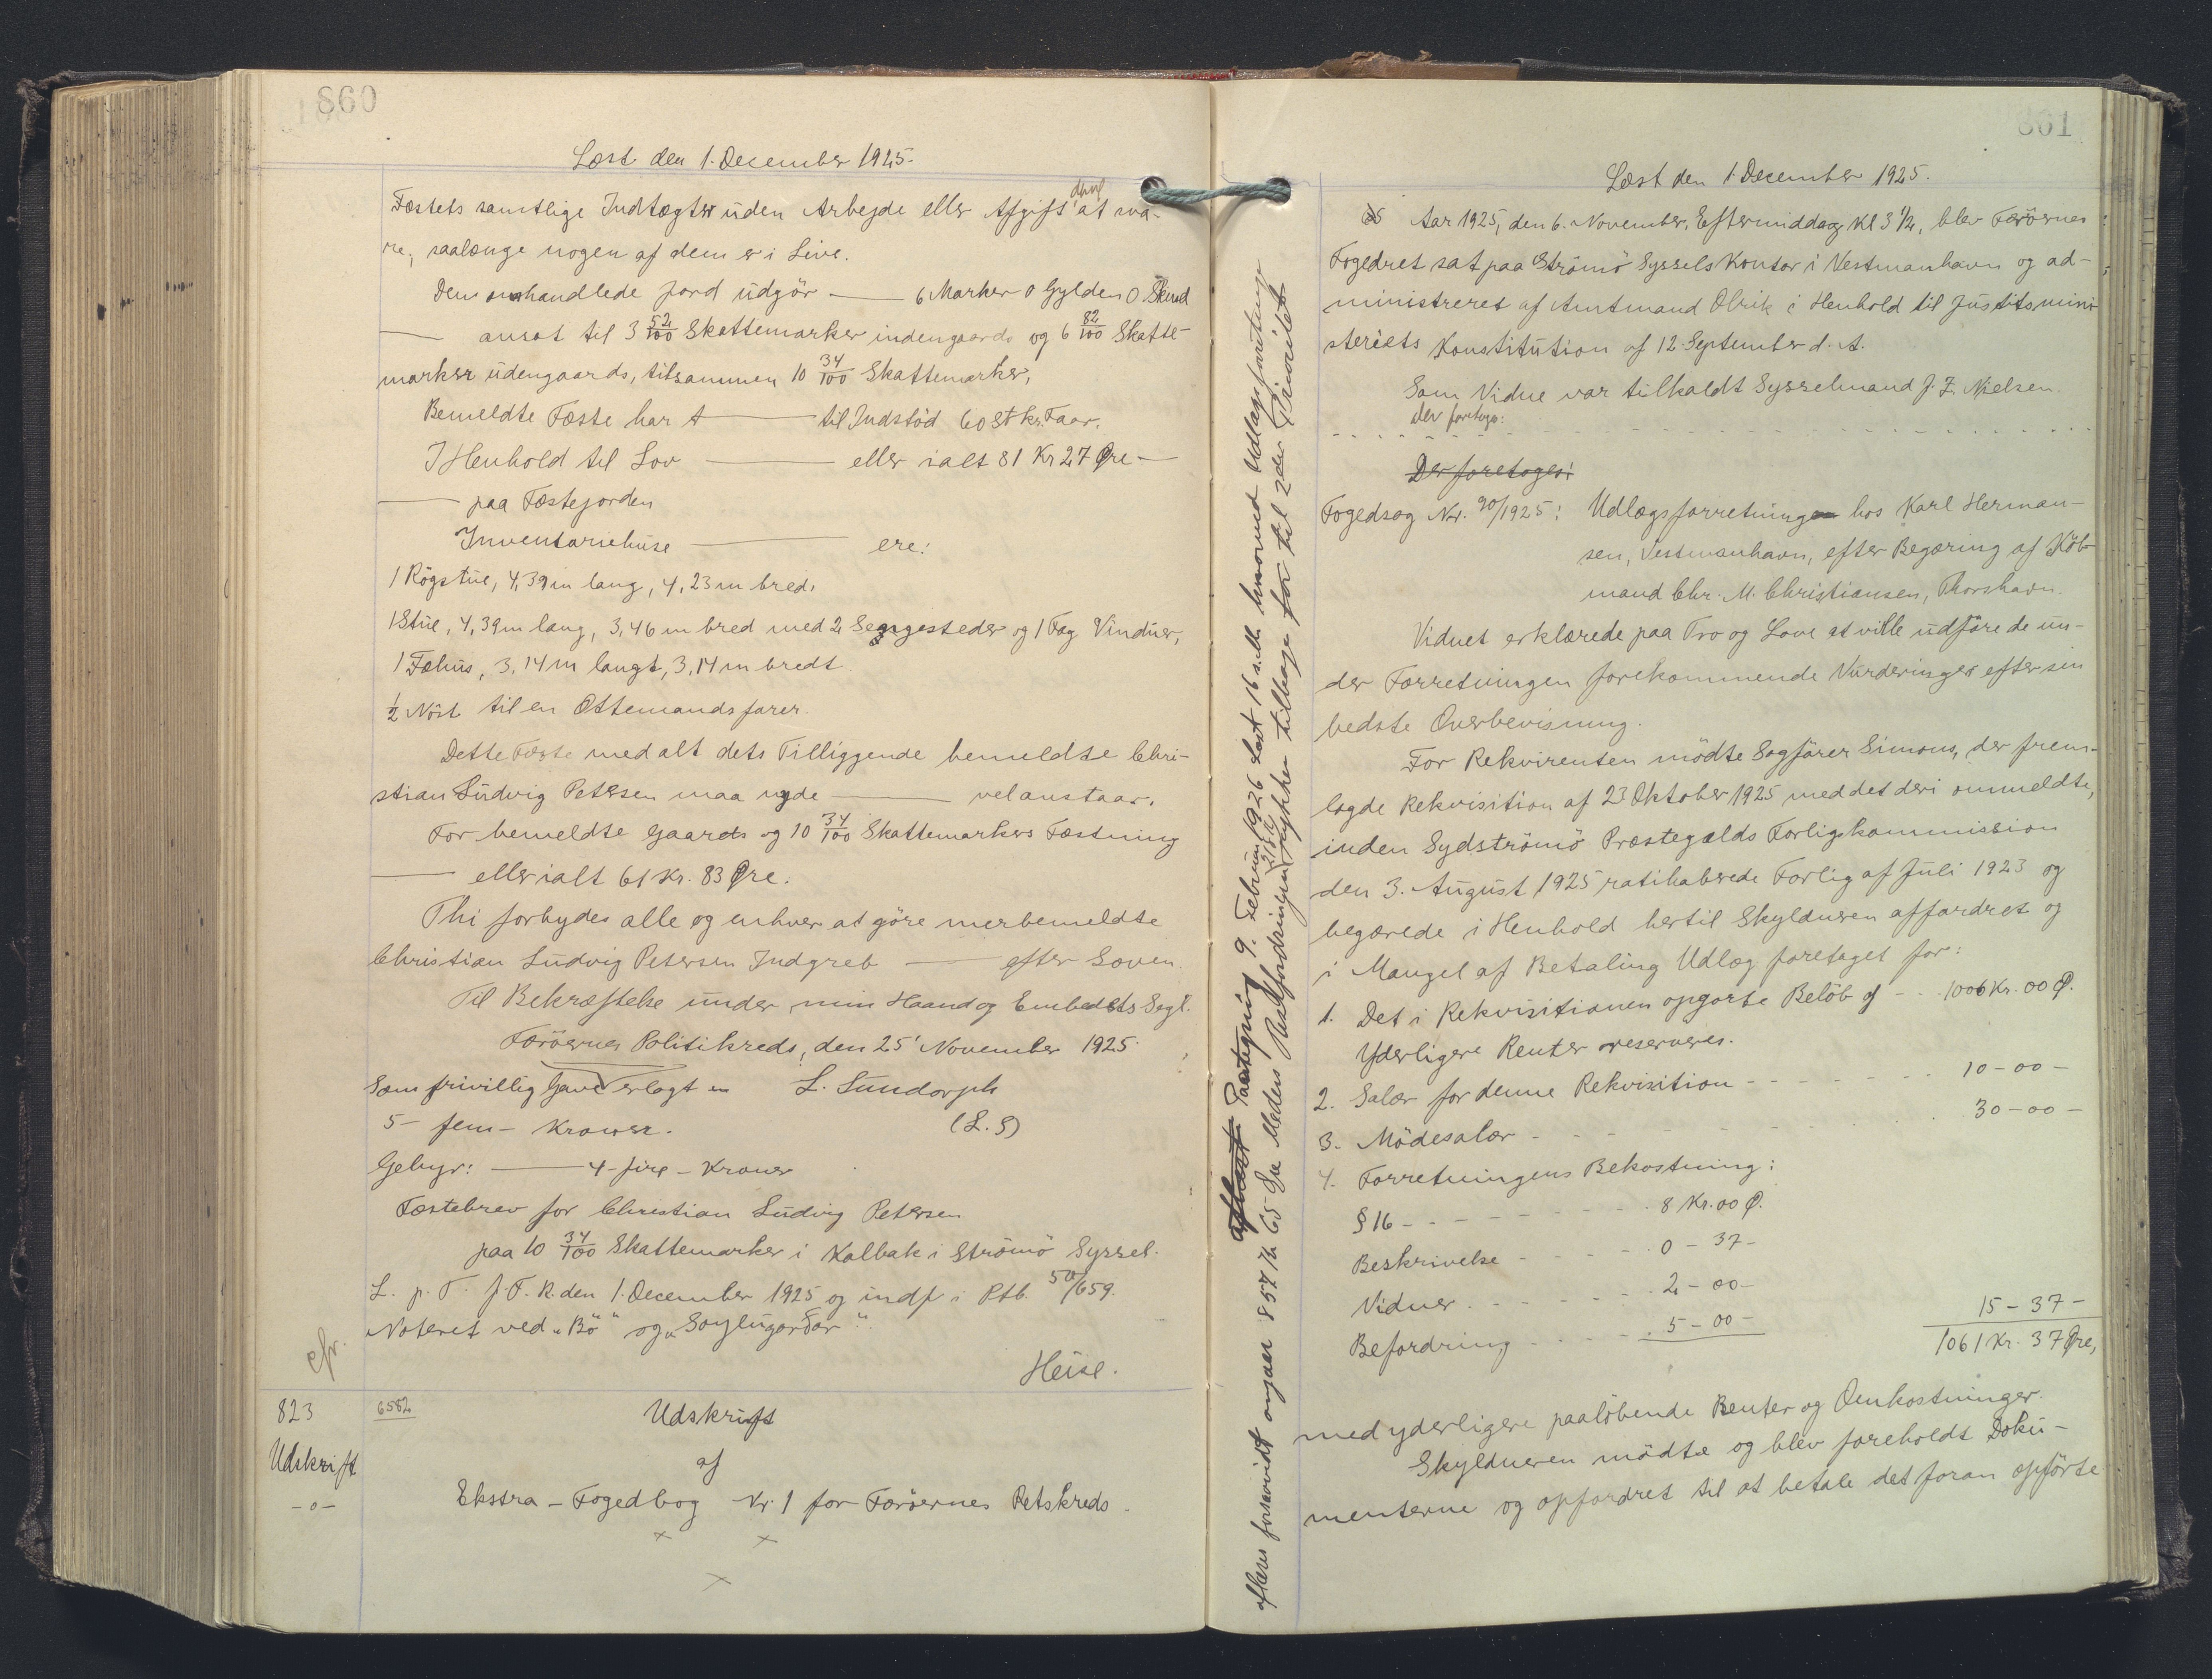 860
Læst den 1. December 1925.
Fæstets samtlige Indtægter uden Arbejde eller Afgift deraf at sva-
re, saalænge nogen af dem er i Live.
Den omhandlede Jord udgör — 6 Marker 0 Gylden 0 Skind
— ansat til 3 52/100 Skattemarker indengaards og 6 82/100 Skatte-
marker udengaards, tilsammen 10 34/100 Skattemarker.
Bemeldte Fæste har — til Indstöd 60 Stkr. Faar.
I Henhold til Lov — eller ialt 81 Kr 27 Øre —
— paa Fæstejorden
Inventariehuse — ere:
1 Rögstue, 4,39 m lang, 4,23 m bred.
1 Stue, 4,39 m lang, 3,46 m bred med 2 Sengesteder og 1 Fag Vinduer,
1 Fæhus, 3,14 m langt, 3,14 m bredt.
1/2 Nöst til en Ottemandsfarer.
Dette Fæste med alt dets Tilliggende bemeldte Chri-
stian Ludvig Petersen maa nyde — vel anstaar.
For bemeldte Gaards og 10 34/100 Skattemarkers Fæstning
— eller ialt 61 Kr. 83 Øre.
Thi forbydes alle og enhver at göre merbemeldte
Christian Ludvig Petersen Indgreb — efter Loven.
Til Bekræftelse under min Haand og Embedets Segl.
Færöernes Politikreds, den 25' November 1925.
Som frivillig Gave erlagt L. Sundorph
5 - fem - Kroner. (L.S)
Gebyr: — 4 - fire - Kroner
Fæstebrev for Christian Ludvig Petersen
paa 10 34/100 Skattemarker i Kalbak i Strömö Syssel.
L. p. T. f. F. R. den 1. December 1925 og indf i Ptb. 50/659.
Noteret ved "Bö" og
Heise.
cfr.
823 6582 Udskrift
Udskrift af
-0- Ekstra - Fogedbog Nr. 1 for Færöernes Retskreds.
Paategning 9. Februar 1926 Læst 16 s. M. hvorved Udlagsforretningen
aflæses forsaavidt angaar 854 Kr. 65 Øre Medens Restfordringen rykker tilbage for til 2den Prioritet
861
Læst den 1 December 1925.
Aar 1925, den 6. November, Eftermiddag Kl 3 1/2, blev Færöernes
Fogedret sat paa Strömö Syssels Kontor i Vestmanhavn og ad-
ministreret af Amtmand Olrik i Henhold til Justitsmini-
steriets Konstitution af 12. September d. A.
Som Vidne var tilkaldt Sysselmand J. Z. Nielsen.
Der foretoges:
Der foretoges:
Fogedsag Nr. 90/1925: Udlægsforretning hos Karl Herman-
sen, Vestmanhavn, efter Begæring af Köb-
mand Chr. M. Christiansen, Thorshavn.
Vidnet erklærede paa Tro og Love at ville udföre de un-
der Forretningen forekommende Vurderinger efter sin
bedste Overbevisning.
For Rekvirenten mödte Sagförer Simons, der frem-
lagde Rekvisition af 23 Oktober 1925 med det deri ommeldte,
inden Sydströmö Præstegælds Forligskommission
den 3. August 1925 ratihaberede Forlig af Juli 1923 og
begærede i Henhold hertil Skyldneren affordret og
i Mangel af Betaling Udlæg foretaget for:
1. Det i Rekvisitionen opgjorte Belöb af - - 1006 Kr. 00 Ø.
Yderligere Renter reserveres.
2. Salær for denne Rekvisition - - - 10 - 00 -
3. Mödesalær - - - 30 - 00 -
4. Forretningens Bekostning:
§ 16 - - - 8 Kr. 00 Ø.
Beskrivelse - - - 0 - 37 -
Vidner - - - 2 - 00 -
Befordring - - - 5 - 00 - 15 - 37 -
1061 Kr. 37 Øre,
med yderligere paalöbende Renter og Omkostninger.
Skyldneren mödte og blev foreholdt Doku-
menterne og opfordret til at betale det foran opförte